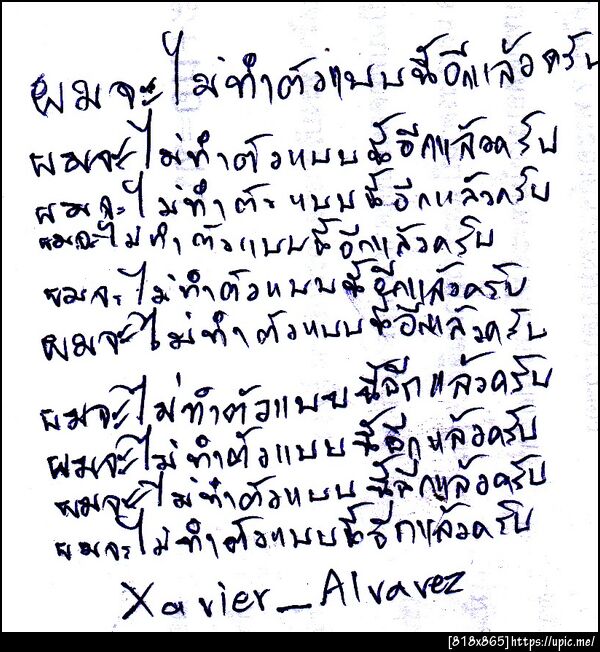 ผมจะไม่ทำตัวแบบนี้อีกแล้วครับ
ผมจะไม่ทำตัวแบบนี้อีกแล้วครับ
ผมจะไม่ทำตัวแบบนี้อีกแล้วครับ
ผมจะไม่ทำตัวแบบนี้อีกแล้วครับ
ผมจะไม่ทำตัวแบบนี้อีกแล้วครับ
ผมจะไม่ทำตัวแบบนี้อีกแล้วครับ
ผมจะไม่ทำตัวแบบนี้อีกแล้วครับ
ผมจะไม่ทำตัวแบบนี้อีกแล้วครับ
ผมจะไม่ทำตัวแบบนี้อีกแล้วครับ
ผมจะไม่ทำตัวแบบนี้อีกแล้วครับ
Xavier_Alvarez
[818x865]https://upic.me/